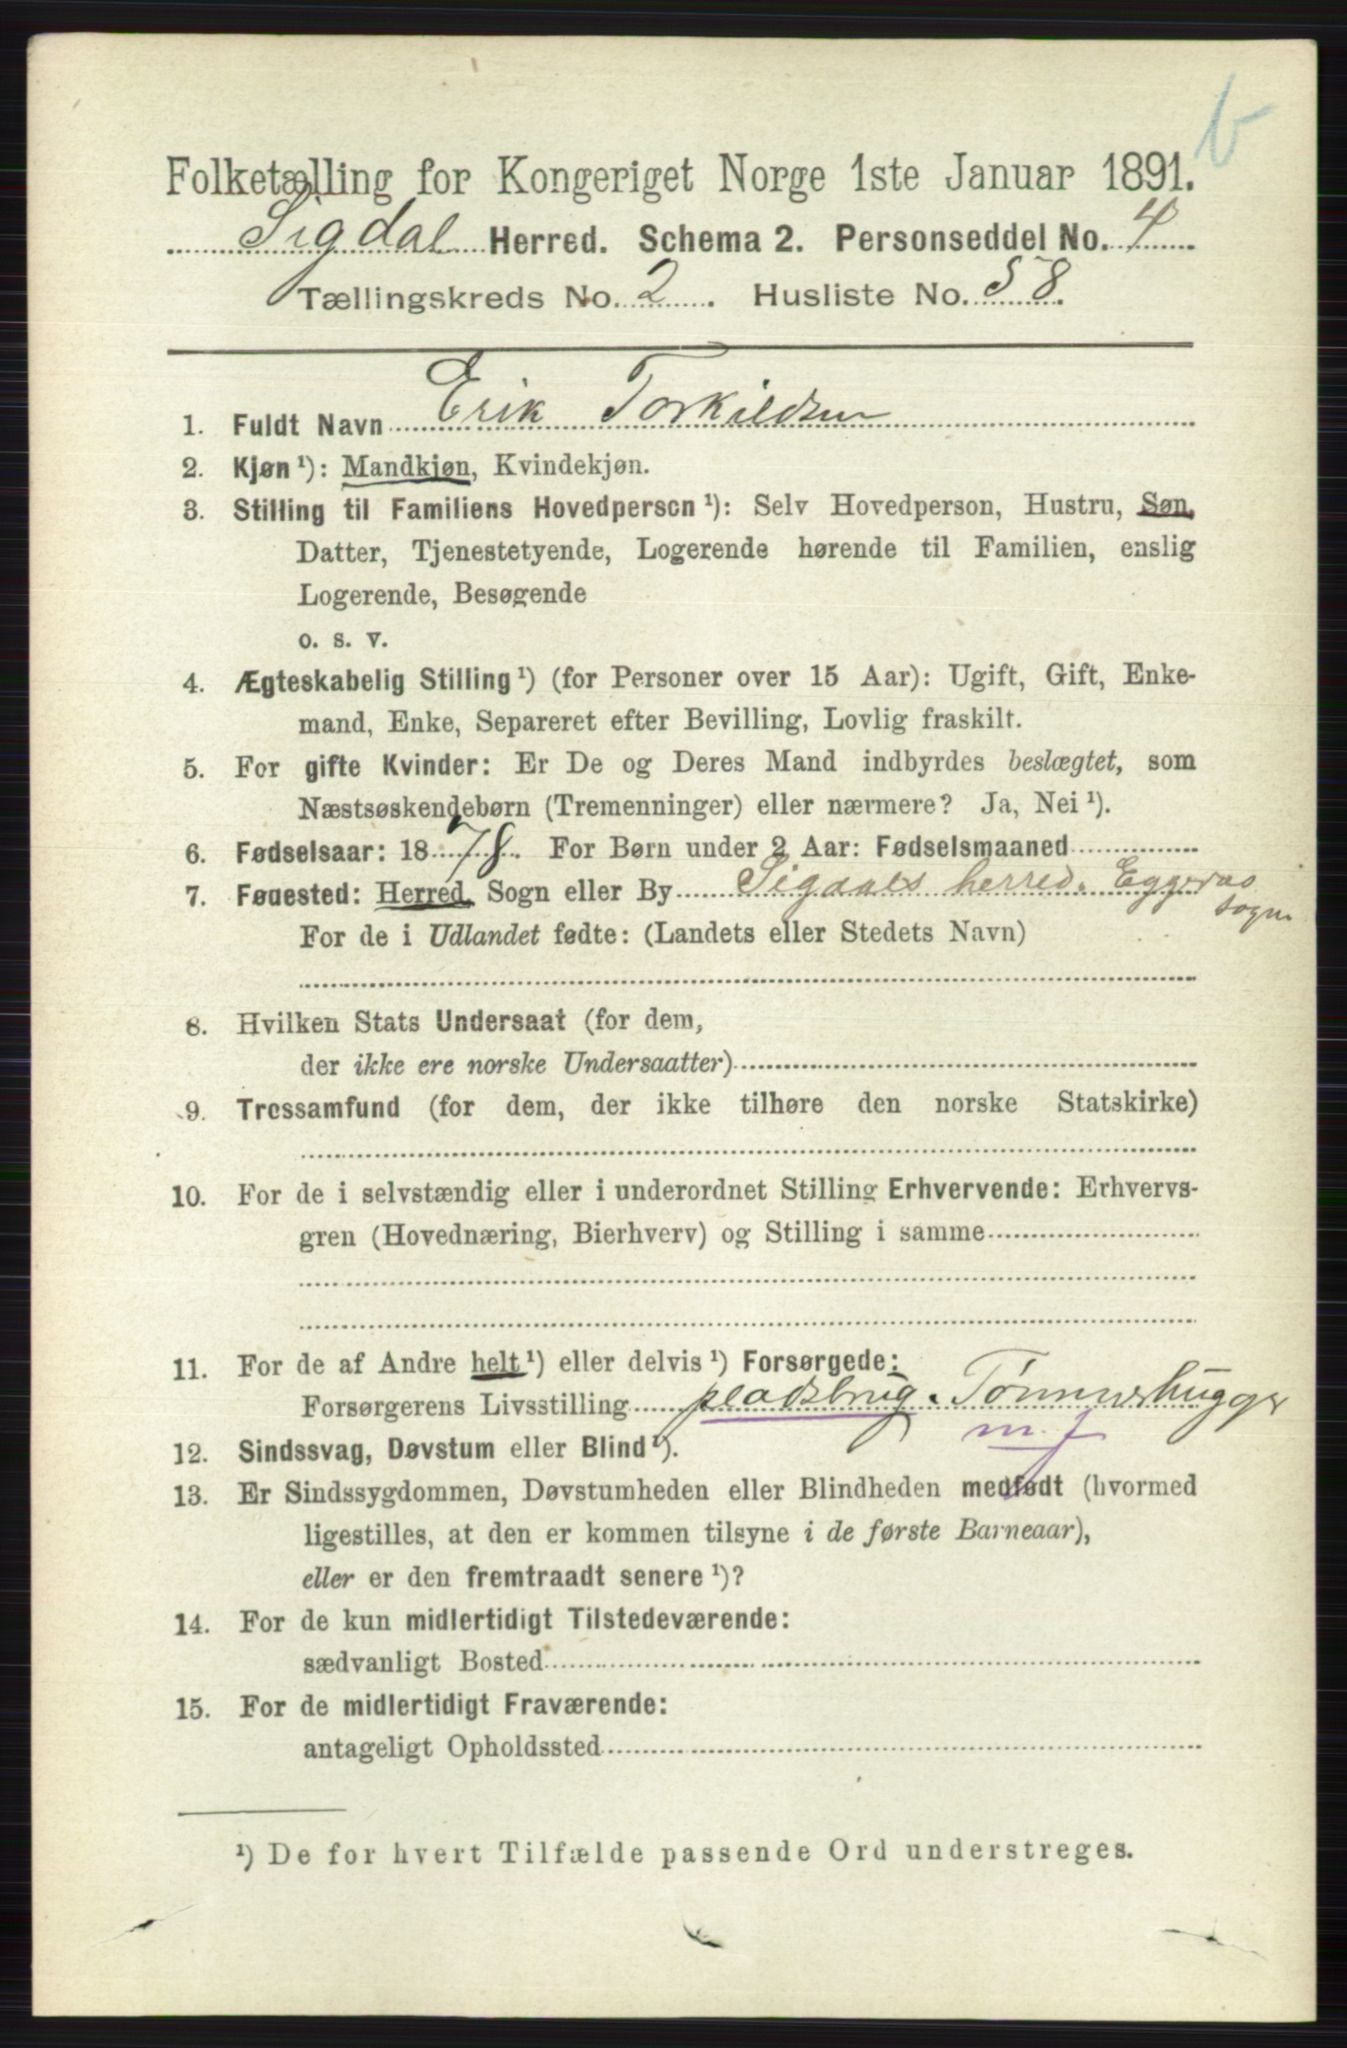 b
Folketælling for Kongeriget Norge 1ste Januar 1891.
Sigdal Herred. Schema 2. Personseddel No. 4
Tællingskreds No. 2. Husliste No. 58.
1. Fuldt Navn Erik Torkildsen
2. Kjøn ¹): Mandkjøn, Kvindekjøn.
3. Stilling til Familiens Hovedperson ¹): Selv Hovedperson, Hustru, Søn,
Datter, Tjenestetyende, Logerende hørende til Familien, enslig
Logerende, Besøgende
o. s. v.
4. Ægteskabelig Stilling ¹) (for Personer over 15 Aar): Ugift, Gift, Enke-
mand, Enke, Separeret efter Bevilling, Lovlig fraskilt.
5. For gifte Kvinder: Er De og Deres Mand indbyrdes beslægtet, som
Næstsøskendebørn (Tremenninger) eller nærmere? Ja, Nei ¹).
6. Fødselsaar: 1878. For Børn under 2 Aar: Fødselsmaaned
7. Fødested: Herred, Sogn eller By Sigdals herred. Eggedals
sogn
For de i Udlandet fødte: (Landets eller Stedets Navn)
8. Hvilken Stats Undersaat (for dem,
der ikke ere norske Undersaatter)
9. Trossamfund (for dem, der ikke tilhøre den norske Statskirke)
10. For de i selvstændig eller i underordnet Stilling Erhvervende: Erhvervs-
gren (Hovednæring, Bierhverv) og Stilling i samme
11. For de af Andre helt ¹) eller delvis ¹) Forsørgede:
Forsørgerens Livsstilling pladsbrug. Tømmerhugger
m. f
12. Sindssvag, Døvstum eller Blind ¹).
13. Er Sindssygdommen, Døvstumheden eller Blindheden medfødt (hvormed
ligestilles, at den er kommen tilsyne i de første Barneaar),
eller er den fremtraadt senere ¹)?
14. For de kun midlertidigt Tilstedeværende:
sædvanligt Bosted
15. For de midlertidigt Fraværende:
antageligt Opholdssted
¹) De for hvert Tilfælde passende Ord understreges.